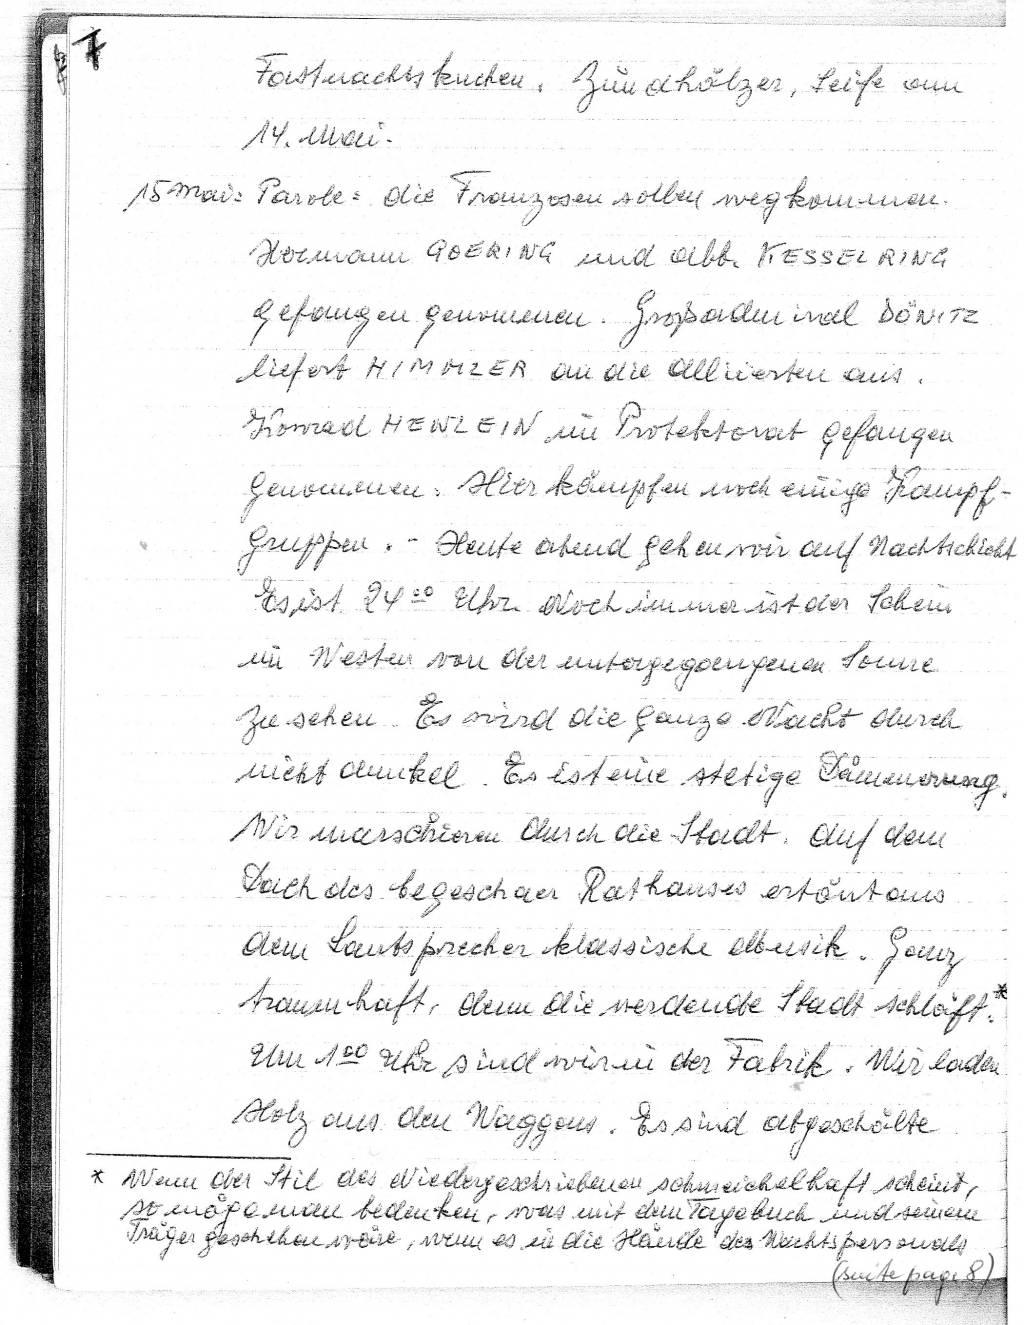 7
Fastnachtskuchen. Zündhölzer, Seife am
14. Mai.
15 Mai: Parole: die Franzosen sollen wegkommen.
Hermann GOERING und Alb. KESSELRING
gefangen genommen. Großadmiral DÖNITZ
liefert HIMMLER an die Alliierten aus.
Konrad HENLEIN im Protektorat gefangen
genommen. Hier kämpfen noch einige Kampf-
gruppen. - Heute abend gehen wir auf Nachtschicht
Es ist 24 00 Uhr. Noch immer ist der Schein
im Westen von der untergegangenen Sonne
zu sehen. Es wird die ganze Nacht durch
nicht dunkel. Es ist eine stetige Dämmerung.
Wir marschieren durch die Stadt. Auf dem
Dach des Rathauses ertönt aus
dem Lautsprecher klassische Musik. Ganz
traumhaft, denn die werdende Stadt schläft.*
Um 1 00 Uhr sind wir in der Fabrik. Wir laden
Holz aus den Waggons. Es sind abgeschälte
* Wenn der Stil des Niedergeschriebenen schmeichelhaft scheint,
so möge man bedenken, was mit dem Tagebuch und seinem
Träger geschehen wäre, wenn es in die Hände des Wachtspersonals
(suite page 8)